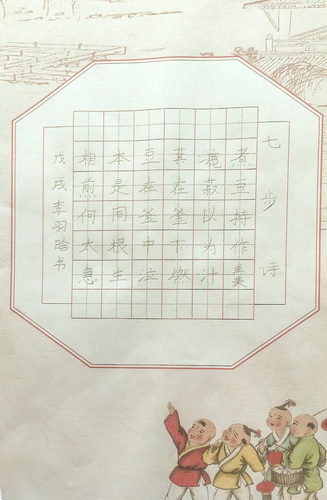 七步诗
煮豆持作羹
漉菽以为汁
其在釜下燃
豆在釜中泣
本是同根生
相煎何太急
戊戌李羽晗书